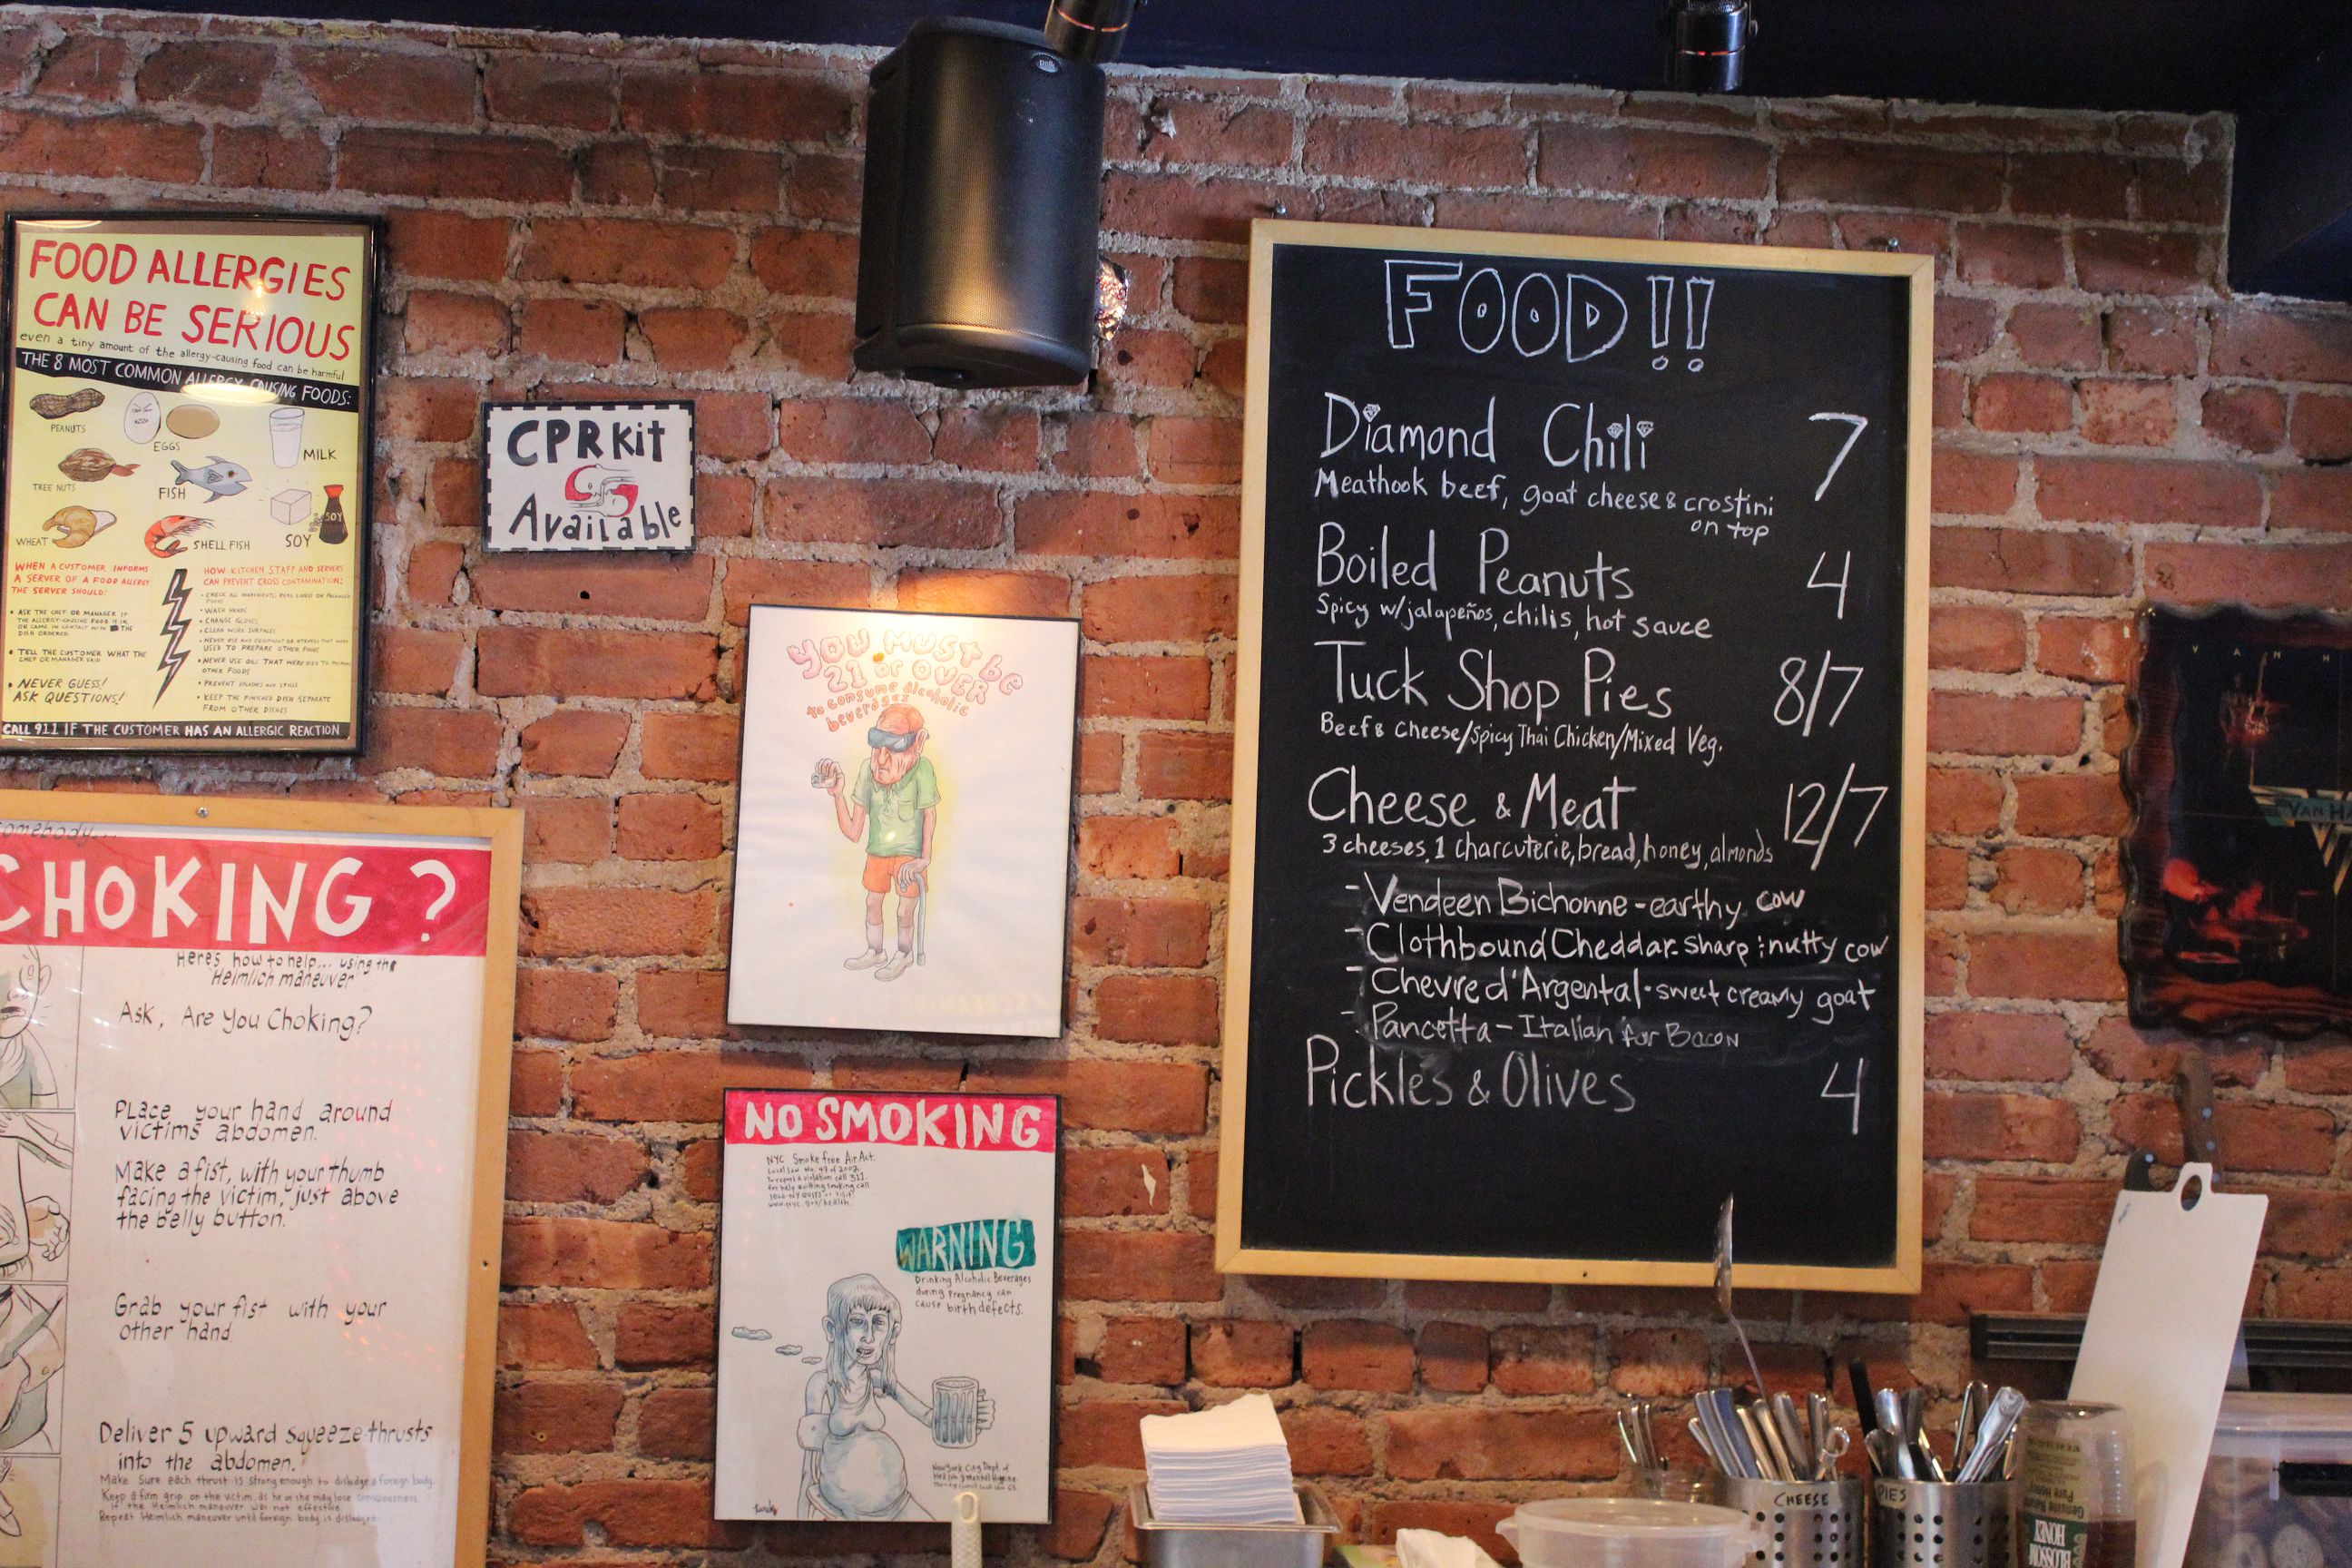 FOOD ALLERGIES
CAN BE SERIOUS
even a tiny amount of the allergy-causing food can be harmful
THE 8 MOST COMMON ALLERGY CAUSING FOODS:
PEANUTS
EGGS
MILK
TREE NUTS
FISH
WHEAT
SHELL FISH
SOY
SOY
WHEN A CUSTOMER INFORMS
A SERVER OF A FOOD ALLERGY
THE SERVER SHOULD:
• ASK THE CHEF OR MANAGER IF
THE ALLERGY-CAUSING FOOD IS IN,
OR CAME IN CONTACT WITH THE
DISH ORDERED.
• TELL THE CUSTOMER WHAT THE
CHEF OR MANAGER SAID.
• NEVER GUESS!
ASK QUESTIONS!
HOW KITCHEN STAFF AND SERVERS
CAN PREVENT CROSS CONTAMINATION:
• CHECK ALL INGREDIENTS LISTED ON PACKAGED
FOODS
• WASH HANDS
• CHANGE GLOVES
• CLEAN WORK SURFACES
• NEVER USE ANY EQUIPMENT OR UTENSILS THAT WERE
USED TO PREPARE OTHER FOODS
• NEVER USE OILS THAT WERE USED TO PREPARE
OTHER FOODS
• PREVENT SPLASHES AND SPILLS
• KEEP THE FINISHED DISH SEPARATE
FROM OTHER DISHES
CALL 911 IF THE CUSTOMER HAS AN ALLERGIC REACTION
CPR Kit
Available
somebody...
CHOKING?
Here's how to help... using the
Heimlich maneuver
Ask, Are You Choking?
Place your hand around
victims abdomen.
Make a fist, with your thumb
facing the victim, just above
the belly button.
Grab your fist with your
other hand
Deliver 5 upward squeeze-thrusts
into the abdomen.
Make Sure each thrust is strong enough to dislodge a foreign body.
Keep a firm grip on the victim, as he or she may lose consciousness
if the Heimlich maneuver was not effective.
Repeat Heimlich maneuver until foreign body is dislodged
YOU MUST be
21 or OVER
to consume alcoholic
beverages
NO SMOKING
NYC Smoke free Air Act.
Local Law No. 47 of 2002
To report a violation call 311.
For help quitting smoking call
or visit
www.nyc.gov/health.
WARNING
Drinking Alcoholic Beverages
during Pregnancy can
cause birth defects.
New York City Dept. of
Health & Mental Hygiene
polk
FOOD!!
Diamond Chili 7
Meathook beef, goat cheese & crostini
on top
Boiled Peanuts 4
Spicy w/jalapeños, chilis, hot sauce
Tuck Shop Pies 8/7
Beef & Cheese/Spicy Thai Chicken/Mixed Veg.
Cheese & Meat 12/7
3 cheeses, 1 charcuterie, bread, honey, almonds
- Vendeen Bichonne - earthy cow
- Clothbound Cheddar - sharp & nutty cow
- Chevre d'Argental - sweet creamy goat
- Pancetta - Italian for Bacon
Pickles & Olives 4
VAN H
VAN H
CHEESE
PIES
BLOSSOM
HONEY
Pure Honey